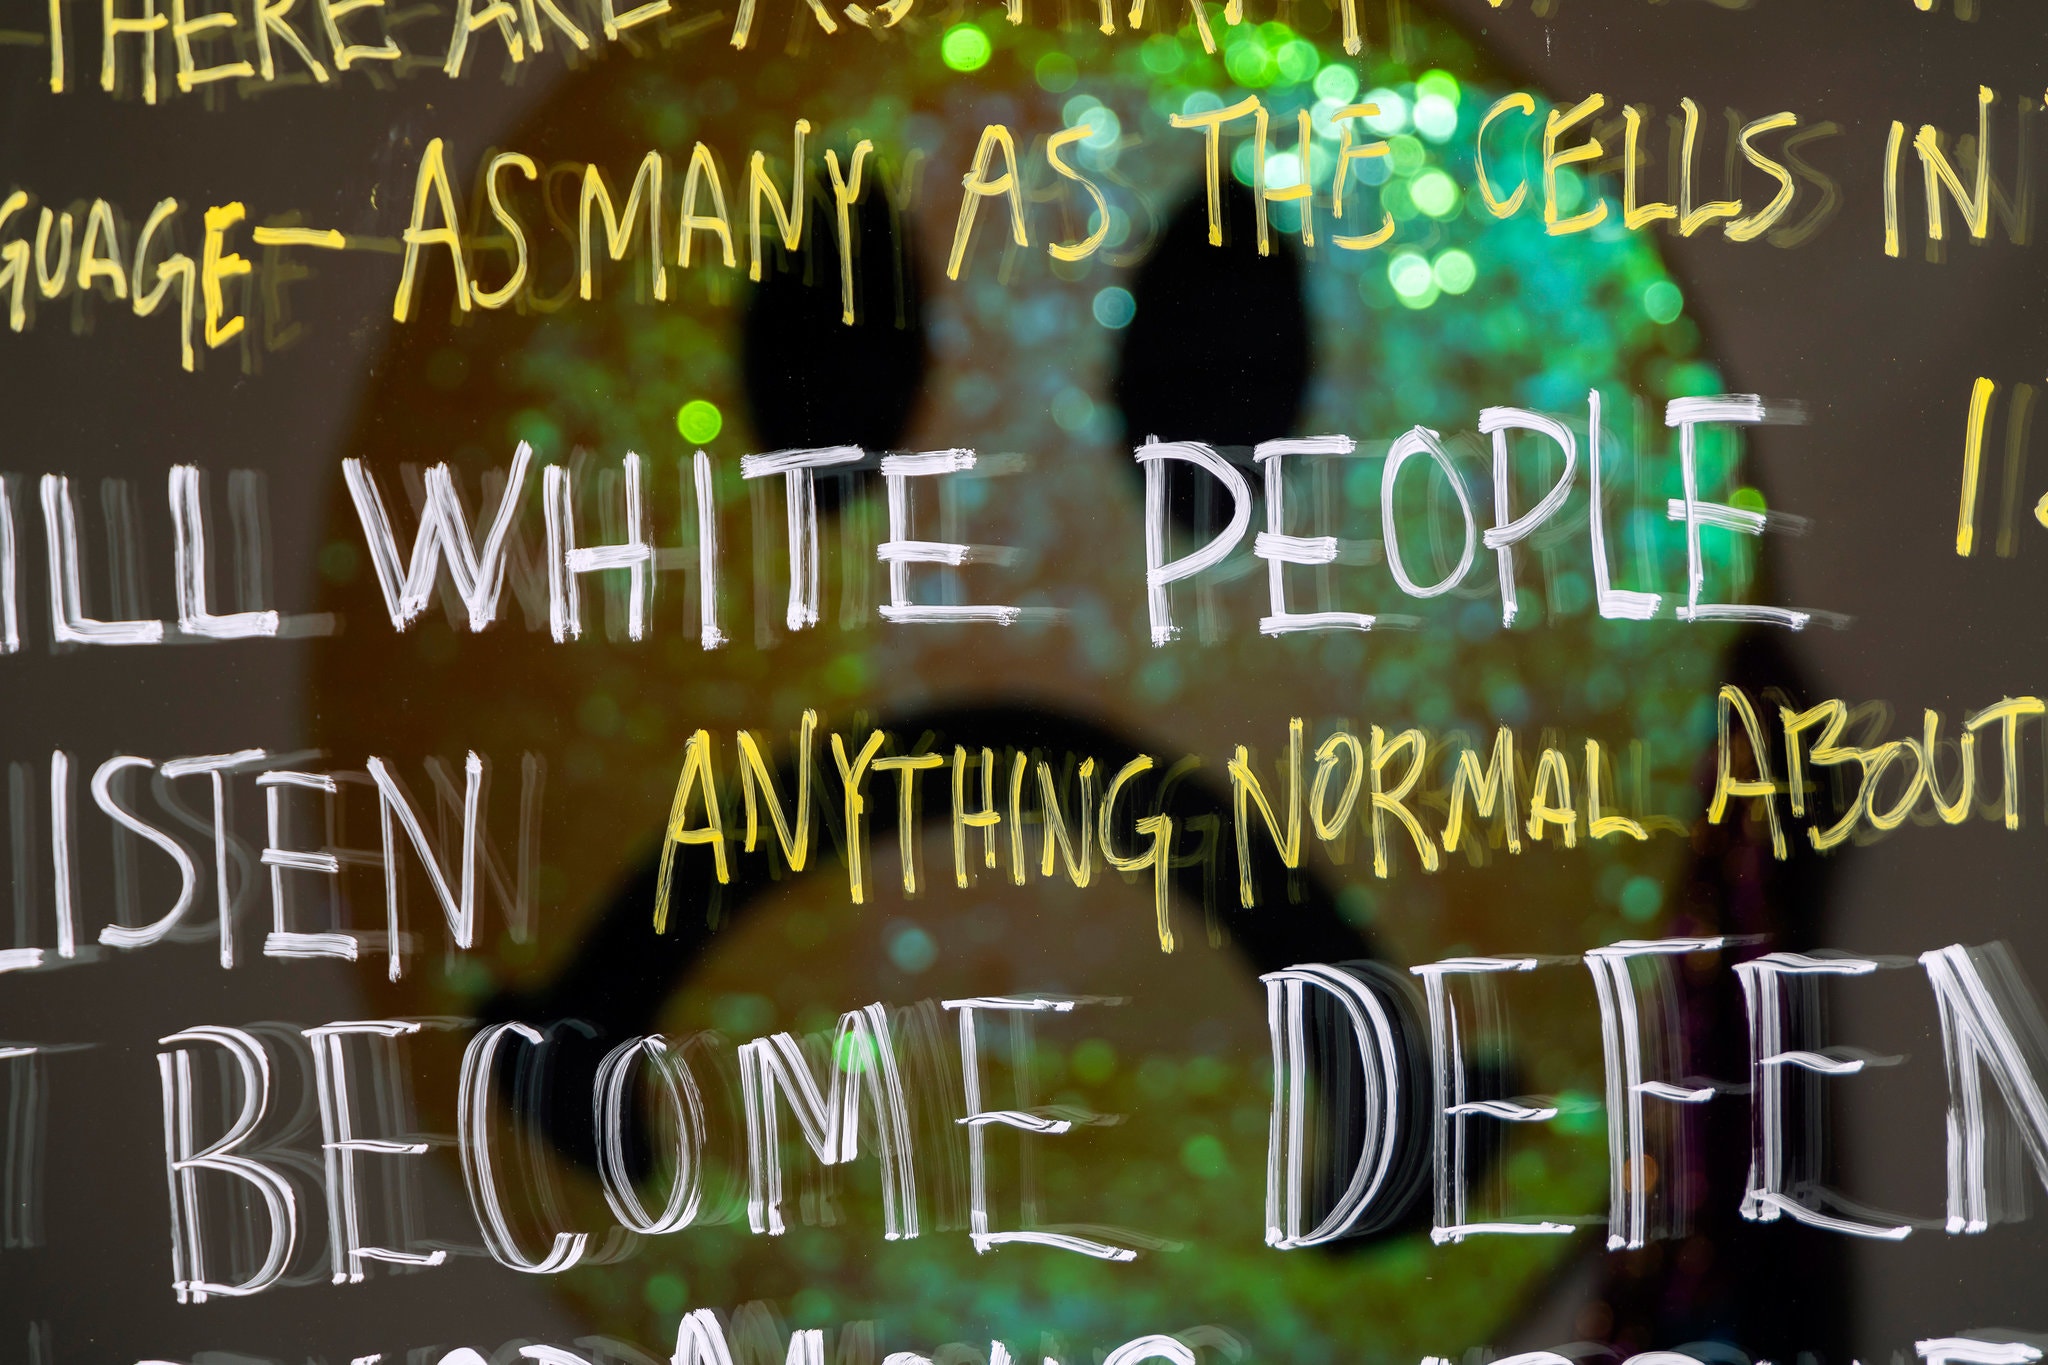 THERE ARE AS MANY
GUAGE — AS MANY AS THE CELLS IN
ILL WHITE PEOPLE
LISTEN ANYTHING NORMAL ABOUT
BECOME DEFEN